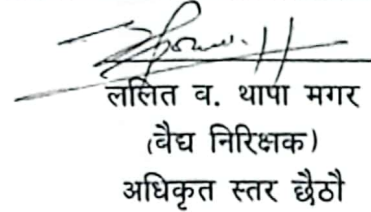 ललित व. थापा मगर
(वैद्य निरिक्षक)
अधिकृत स्तर छैठौ